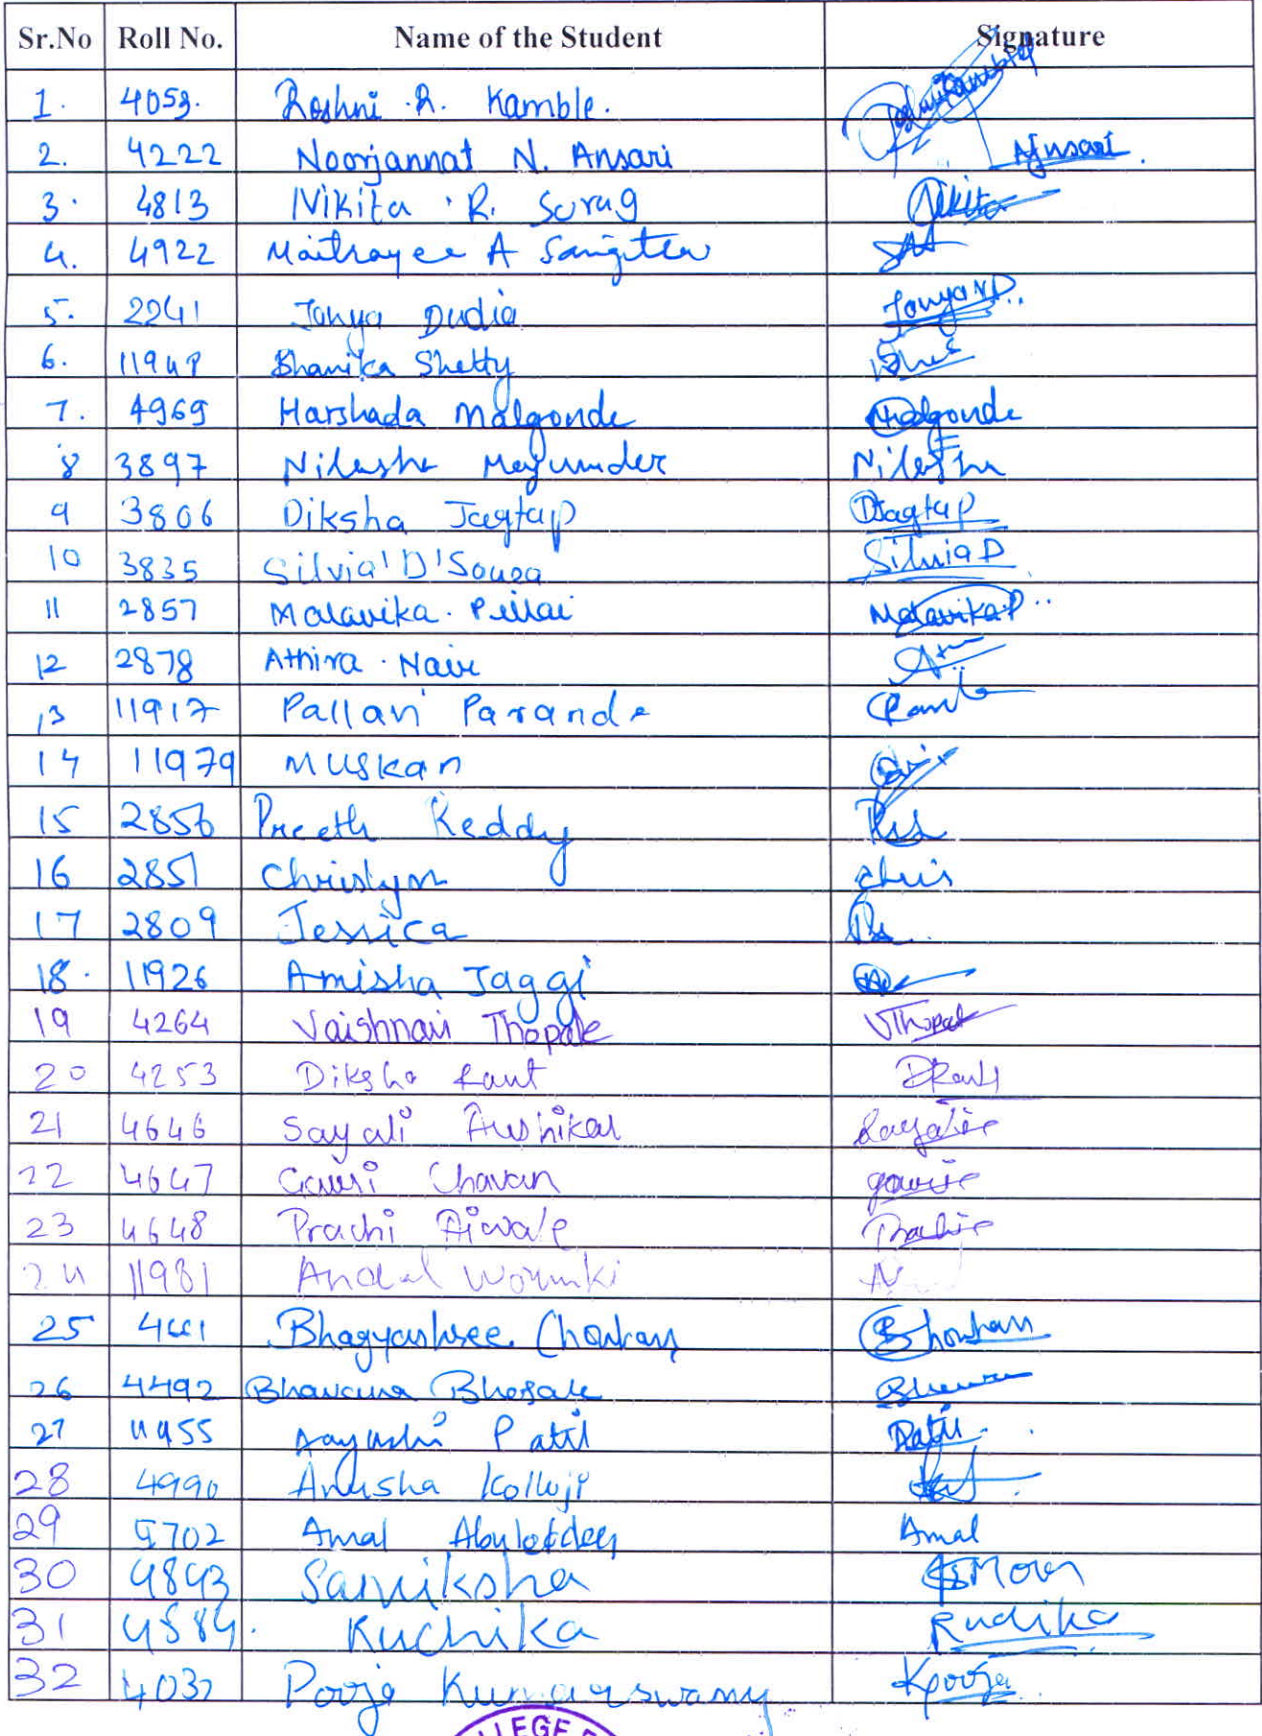 Sr.No Roll No. Name of the Student Signature
1. 4053. Roshni .R. Kamble.
2. 4222 Noorjannat N. Ansari Ansari
3. 4813 Nikita . R. Surag Nikita
4. 4922 Maitrayee A Sangitew
5. 2241 Janya Dudia JanyaD..
6. 11948 Bhanika Shetty
7. 4969 Harshada Malgonde Malgonde
8 3897 Nilesha Majumder Nilesha
9 3806 Diksha Jagtap DJagtap
10 3835 Silvia D'Souza Silvia D
11 2857 Malavika. Pillai MalavikaP..
12 2878 Athira . Nair
13 11917 Pallavi Parande
14 11979 Muskan
15 2856 Preeth Reddy
16 2851 Chrislyn chris
17 2809 Jessica
18. 11926 Amisha Jaggi
19 4264 Vaishnavi Thopate VThopate
20 4253 Diksha Raut DRaut
21 4646 Sayali Aushikar Sayalee
22 4647 Gauri Chavan gauri
23 4648 Prachi Aiwale Prachi
24 11981
25 4661 Bhagyashree Chouhan BChouhan
26 4492 Bhavana Bhosale
27 4455 Aayushi Patil Patil.
28 4990 Anusha Kolluji
29 5702 Amal Amal
30 4843 Samiksha SMore
31 4584. Ruchika Ruchika
32 4032 Pooja Kumarswamy Kpooja
LLEGE